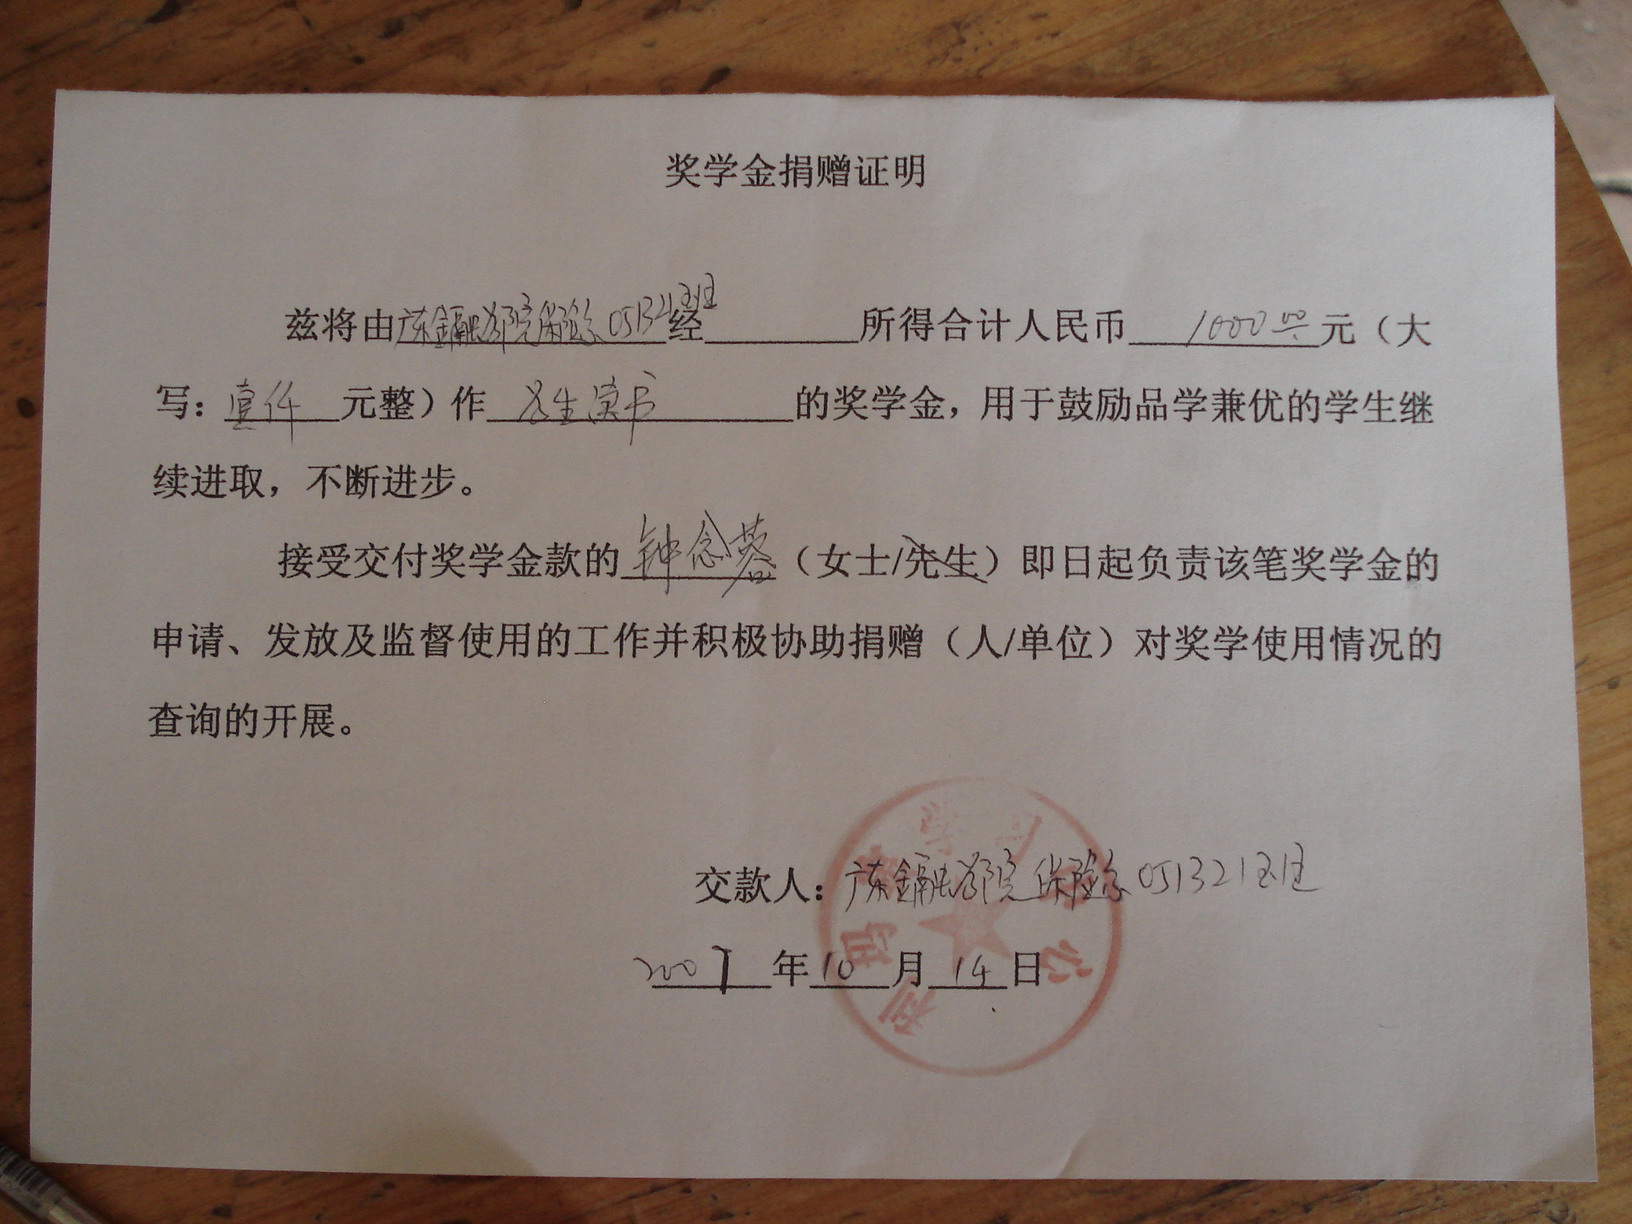 奖学金捐赠证明
兹将由广东金融学院保险系051321班经 所得合计人民币 1000.00 元（大
写：壹仟 元整）作 学生读书 的奖学金，用于鼓励品学兼优的学生继
续进取，不断进步。
接受交付奖学金款的 钟念蓉（女士/先生）即日起负责该笔奖学金的
申请、发放及监督使用的工作并积极协助捐赠（人/单位）对奖学使用情况的
查询的开展。
交款人：广东金融学院保险系051321班
2007 年 10 月 14 日